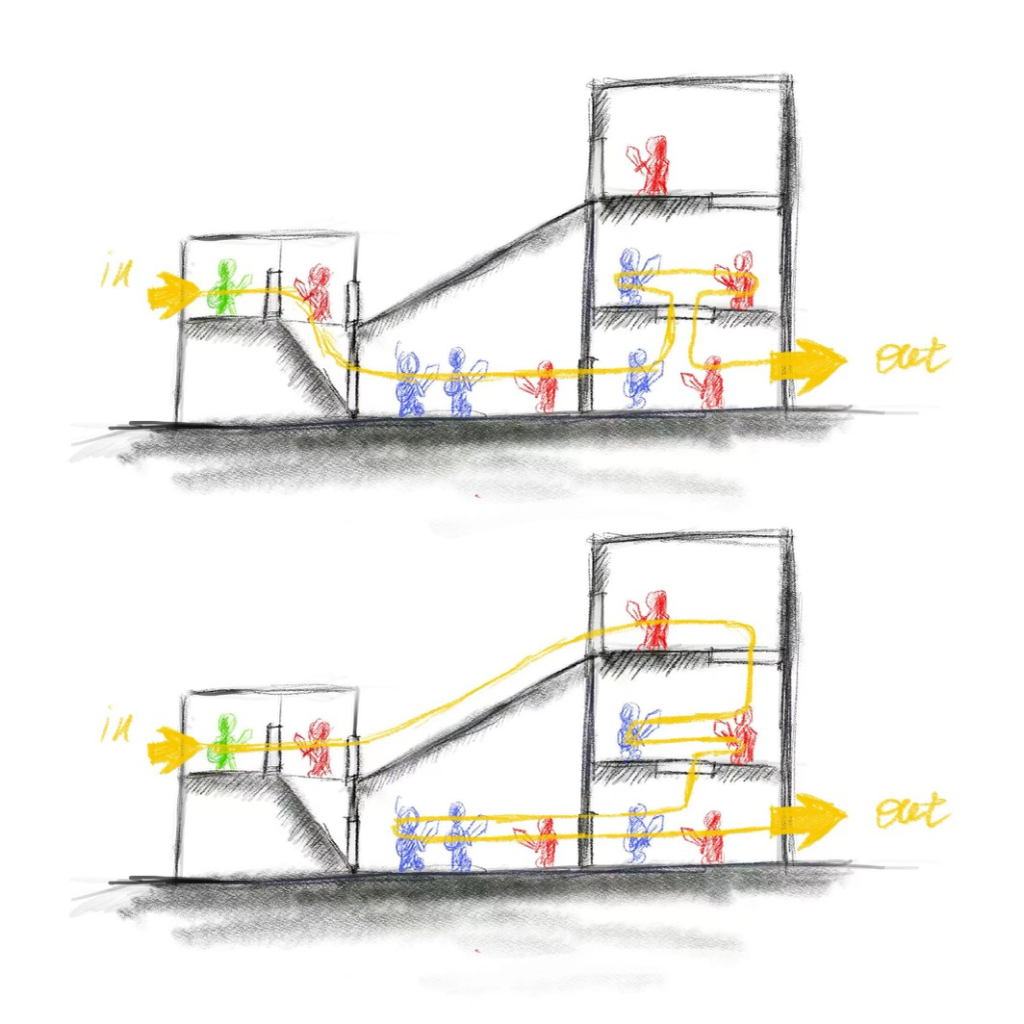 in
out
in
out